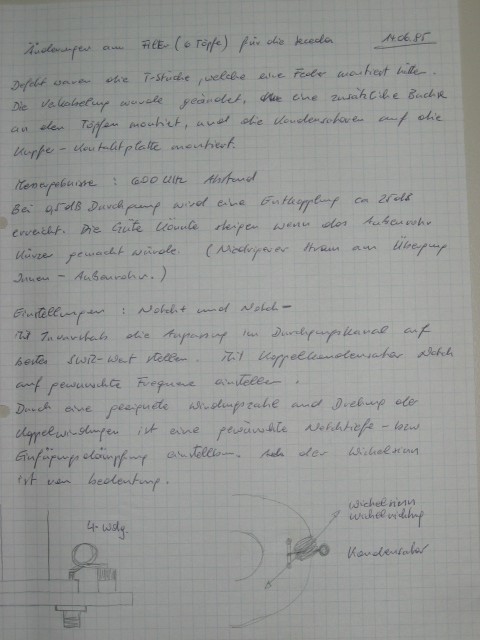 Änderungen am Filter (6 Töpfe) für die 14.06.85
Defekt waren die T-Stücke, welche eine Feder montiert hatten.
Die Verkabelung wurde geändert, eine zusätzliche Buchse
an den Töpfen montiert, und die Kondensatoren auf die
Kupfer-Kontaktplatte montiert.
Messergebnisse : 600 kHz Abstand
Bei 0,5dB Durchgang wird eine Entkopplung ca 25dB
erreicht. Die Güte könnte steigen wenn das Außenrohr
kürzer gemacht würde. (Niedrigerer Strom am Übergang
Innen-Außenrohr.)
Einstellungen : Notch+ und Notch-
Mit die Anpassung im Durchgangskanal auf
bestes SWR-Wert stellen. Mit Koppelkondensator Notch
auf gewünschte Frequenz einstellen.
Durch eine geeignete Windungszahl und Drehung der
Koppelwindungen ist eine gewünschte Notchtiefe- bzw
Einfügungsdämpfung einstellbar. der Wickelsinn
ist von bedeutung.
4-Wdg.
Wickelsinn
Kondensator